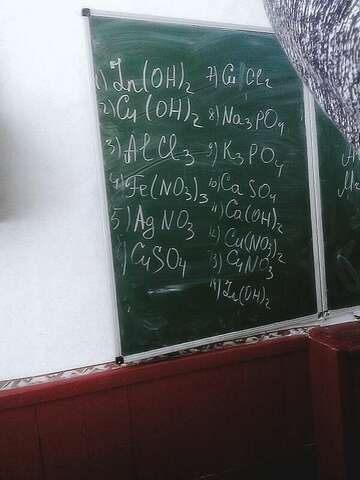 1) Zn(OH)2
2) Cu(OH)2
3) AlCl3
4) Fe(NO3)3
5) AgNO3
) CuSO4
7) Cu Cl2
8) Na3PO4
9) K3PO4
10) CaSO4
11) Ca(OH)2
12) Cu(NO3)2
13) CuNO3
14) Zn(OH)2